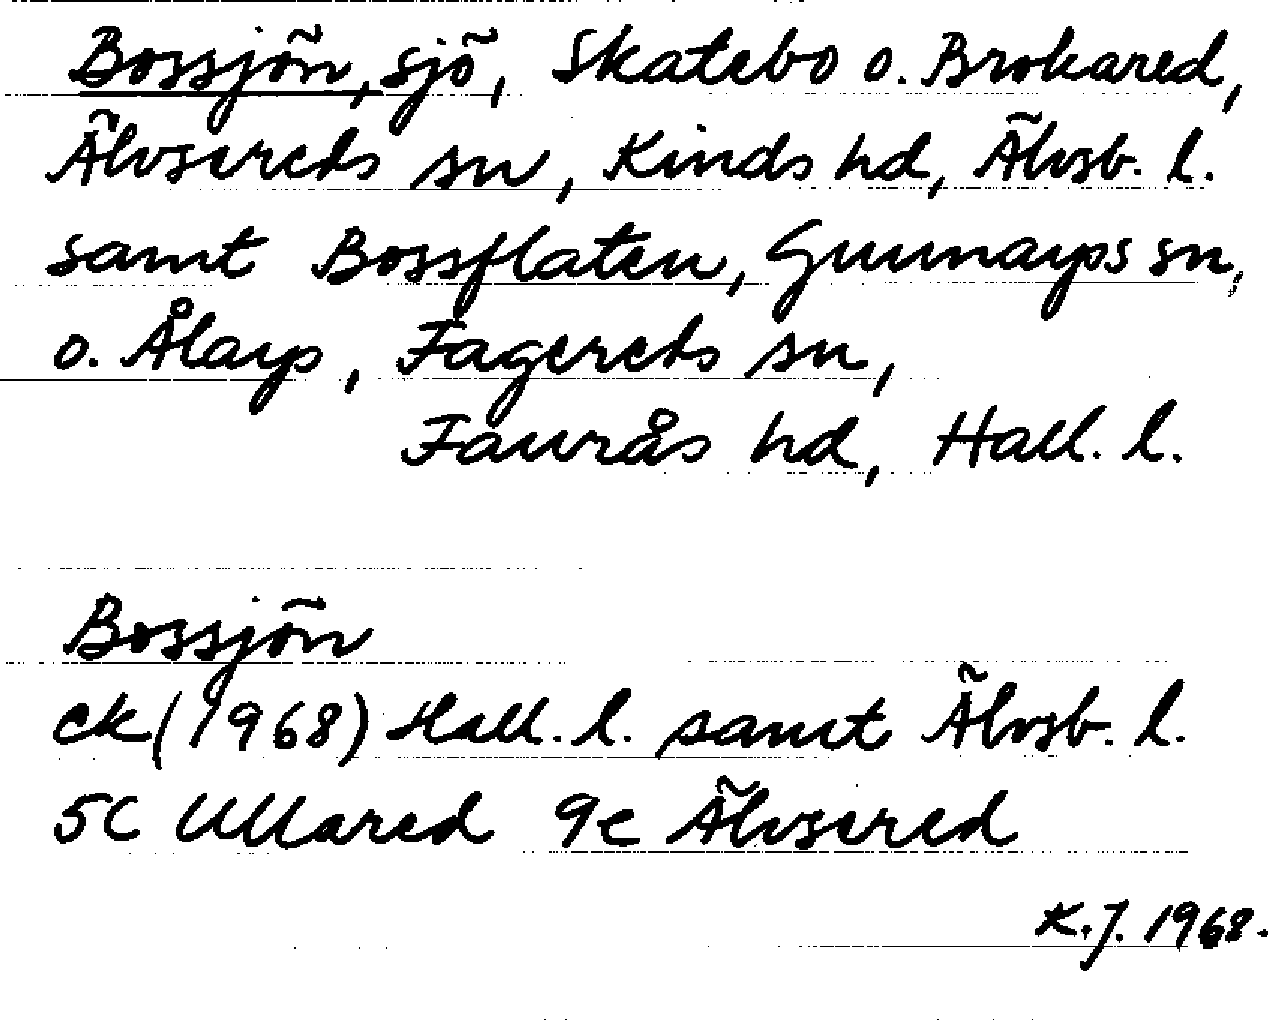 Bossjön, sjö, Skatebo o. Brokared,
Älvsereds sn, Kinds hd, Älvsb. l.
samt Bossflaten, Gunnarps sn,
o. Ålarps, Fagereds sn,
Faurås hd, Hall. l.
Bossjön
ek (1968) Hall. l. samt Älvsb. l.
5C Ullared 9e Älvsered
K.J. 1968.